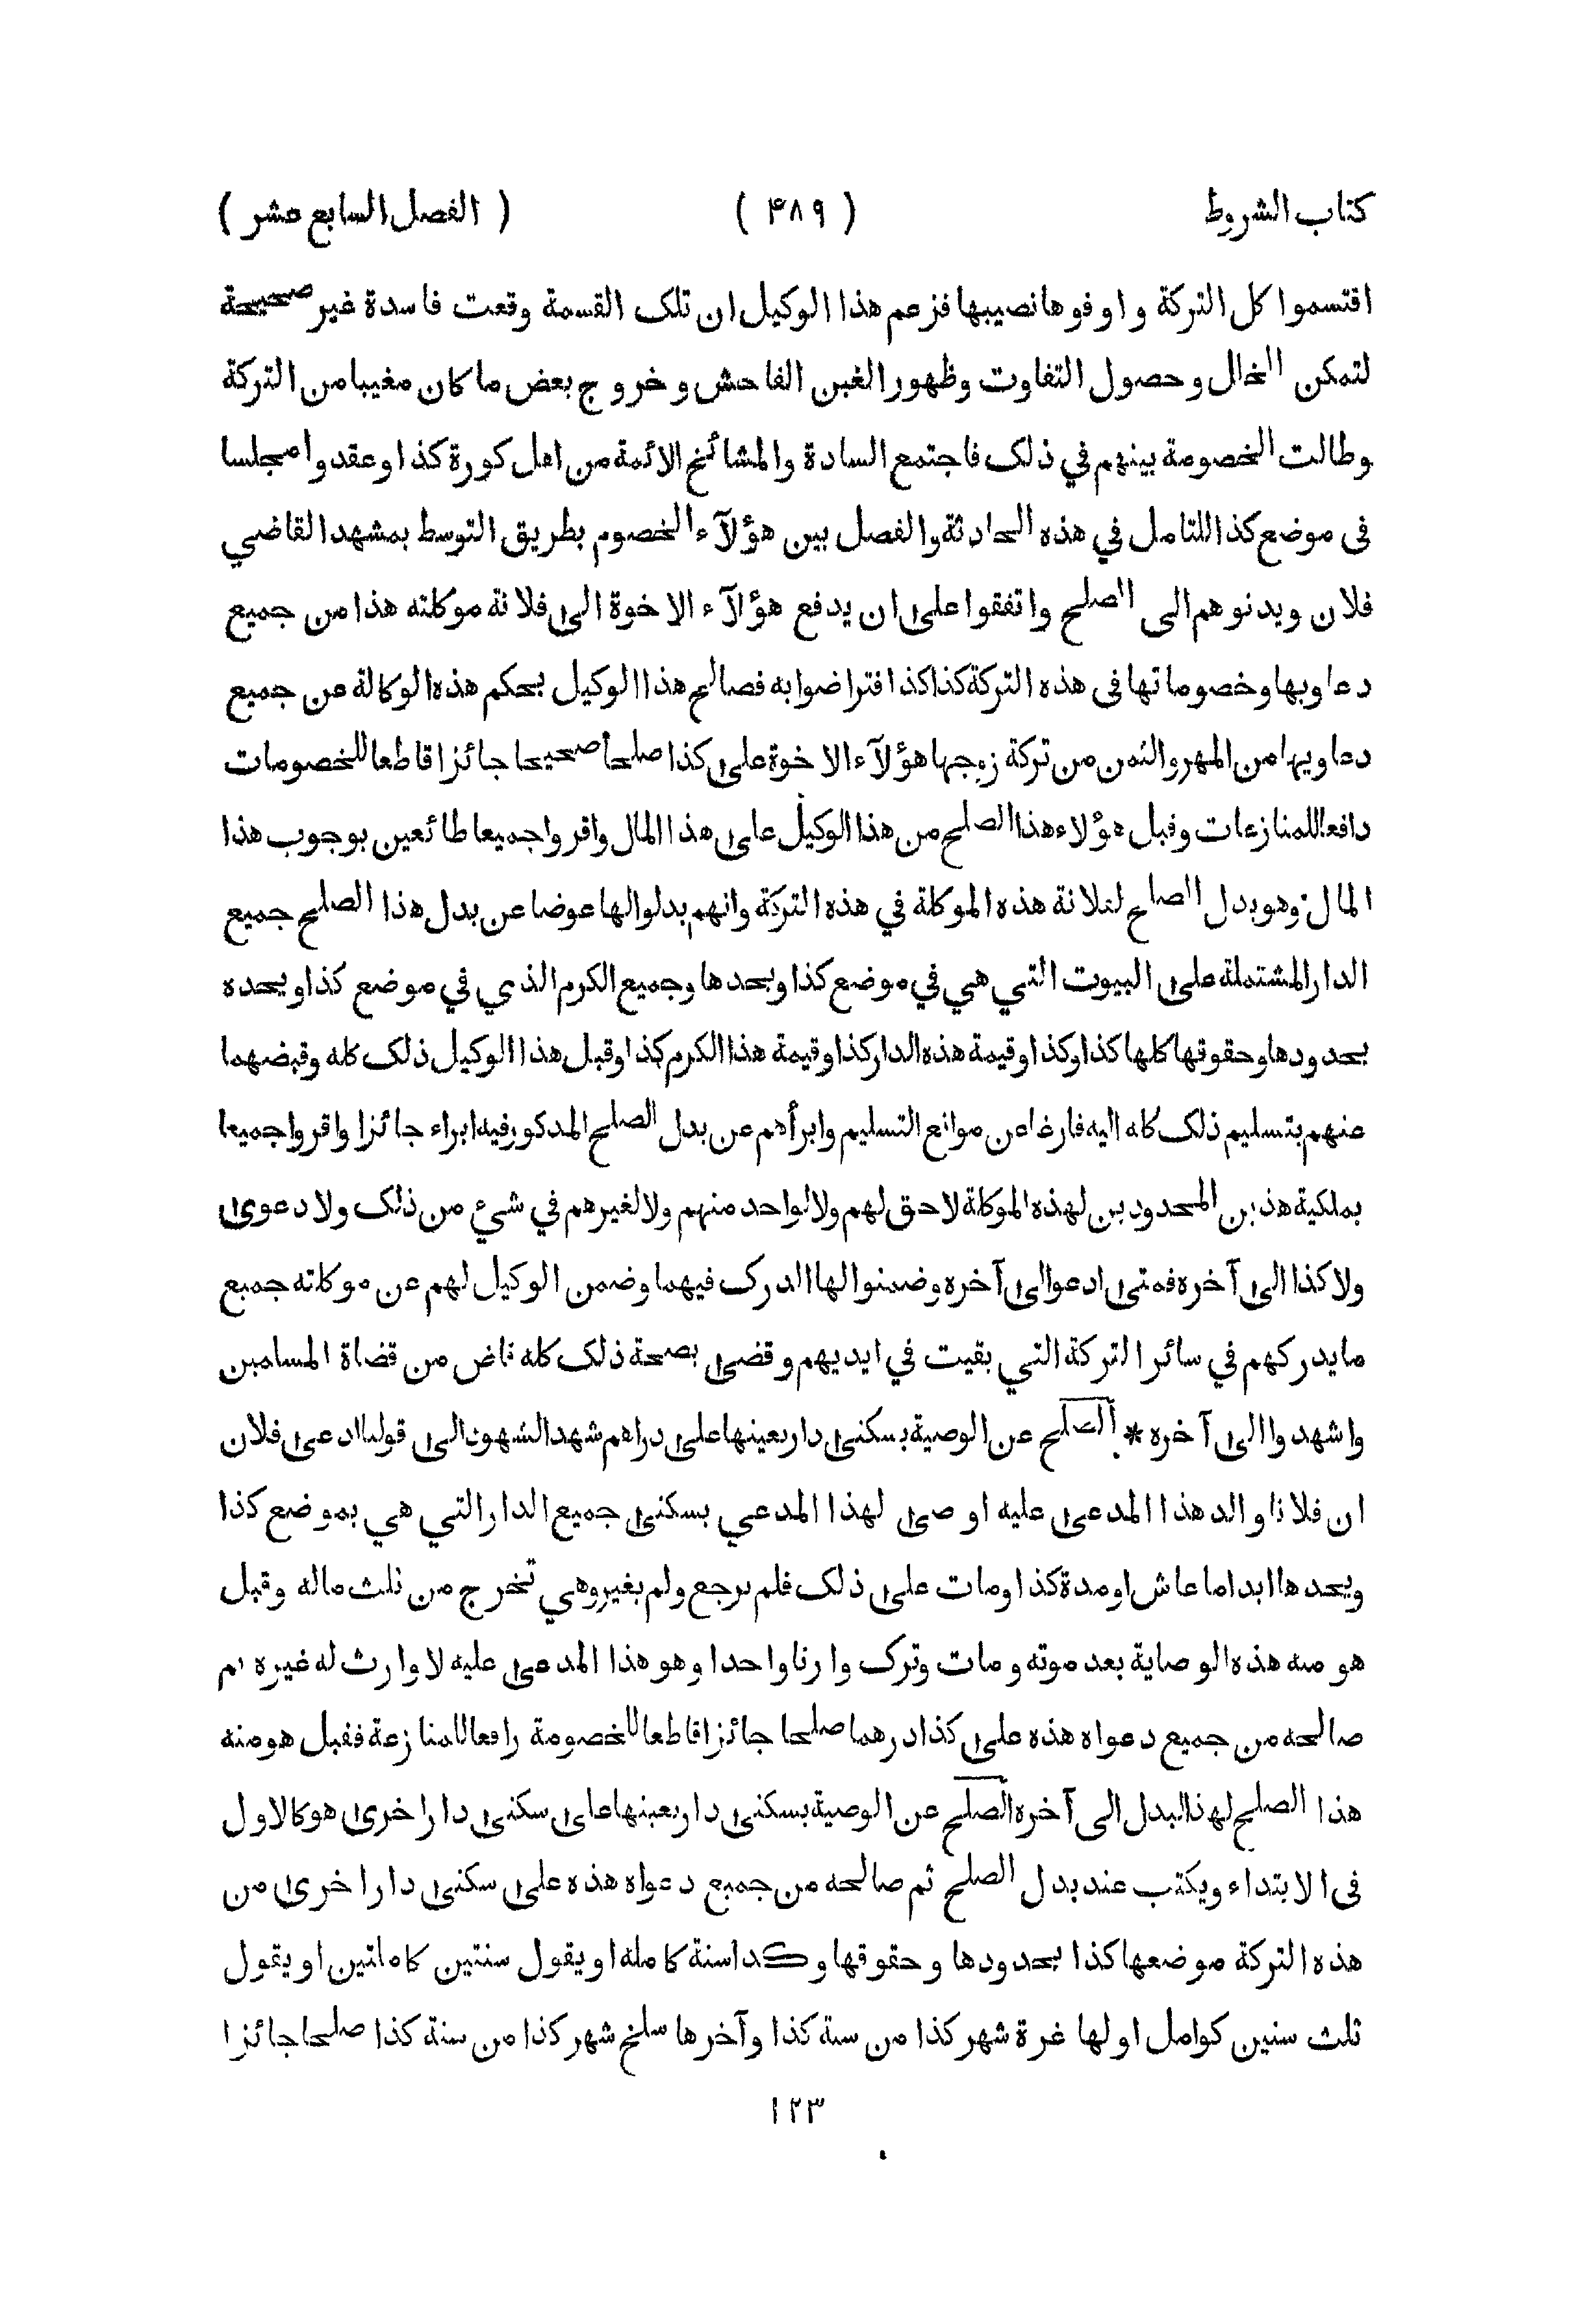 كتاب الشروط ( ۴۸۹ ) ( الفصل السابع عشر )
اقتسموا كل التركة واوفوها نصيبها فزعم هذا الوكيل ان تلك القسمة وقعت فاسدة غير صحيحة
لتمكن الخلل وحصول التفاوت وظهور الغبن الفاحش وخروج بعض ما كان مغيبا من التركة
وطالت الخصومة بينهم في ذلك فاجتمع السادة والمشائخ الائمة من اهل كورة كذا وعقدوا مجلسا
فى موضع كذا للتامل في هذه الحادثة والفصل بين هؤلآء الخصوم بطريق التوسط بمشهد القاضي
فلان ويدنوهم الى الصلح واتفقوا على ان يدفع هؤلآء الاخوة الى فلانة موكلته هذا من جميع
دعاويها وخصوماتها فى هذه التركة كذا كذا فتراضوا به فصالح هذا الوكيل بحكم هذه الوكالة من جميع
دعاويها من المهر والثمن من تركة زوجها هؤلآء الاخوة على كذا صلحا صحيحا جائزا قاطعا للخصومات
دافعا للمنازعات وقبل هؤلاء هذا الصلح من هذا الوكيل على هذا المال واقروا جميعا طائعين بوجوب هذا
المال وهو بدل الصلح لفلانة هذه الموكلة في هذه التركة وانهم بدلوا لها عوضا عن بدل هذا الصلح جميع
الدار المشتملة على البيوت التي هي في موضع كذا ويحدها وجميع الكرم الذي في موضع كذا ويحده
بحدودها وحقوقها كلها كذا وكذا وقيمة هذه الدار كذا وقيمة هذا الكرم كذا وقبل هذا الوكيل ذلك كله وقبضهما
منهم بتسليم ذلك كله اليه فارغا عن موانع التسليم وابرأهم عن بدل الصلح المذكور فيه ابراء جائزا واقروا جميعا
بملكية هذين المحدودين لهذه الموكلة لا حق لهم ولا لواحد منهم ولا لغيرهم في شيء من ذلك ولا دعوى
ولا كذا الى آخره فمتى ادعوا الى آخره وضمنوا لها الدرك فيهما وضمن الوكيل لهم عن موكلته جميع
ما يدركهم في سائر التركة التي بقيت في ايديهم وقضى بصحة ذلك كله قاض من قضاة المسلمين
واشهدوا الى آخره * الصلح عن الوصية بسكنى دار بعينها على دراهم شهد الشهود الى قولنا ادعى فلان
ان فلانا والد هذا المدعى عليه اوصى لهذا المدعي بسكنى جميع الدار التي هي بموضع كذا
ويحدها ابدا ما عاش او مدة كذا ومات على ذلك فلم يرجع ولم يغير وهي تخرج من ثلث ماله وقبل
هو منه هذه الوصاية بعد موته ومات وترك وارثا واحدا وهو هذا المدعى عليه لا وارث له غيره ثم
صالحه من جميع دعواه هذه على كذا درهما صلحا جائزا قاطعا للخصومة رافعا للمنازعة فقبل هو منه
هذا الصلح لهذا البدل الى آخره الصلح عن الوصية بسكنى دار بعينها على سكنى دار اخرى هو كالاول
فى الابتداء ويكتب عند بدل الصلح ثم صالحه من جميع دعواه هذه على سكنى دار اخرى من
هذه التركة موضعها كذا بحدودها وحقوقها وكذا سنة كاملة او يقول سنتين كاملتين او يقول
ثلث سنين كوامل اولها غرة شهر كذا من سنة كذا وآخرها سلخ شهر كذا من سنة كذا صلحا جائزا
١٢٣